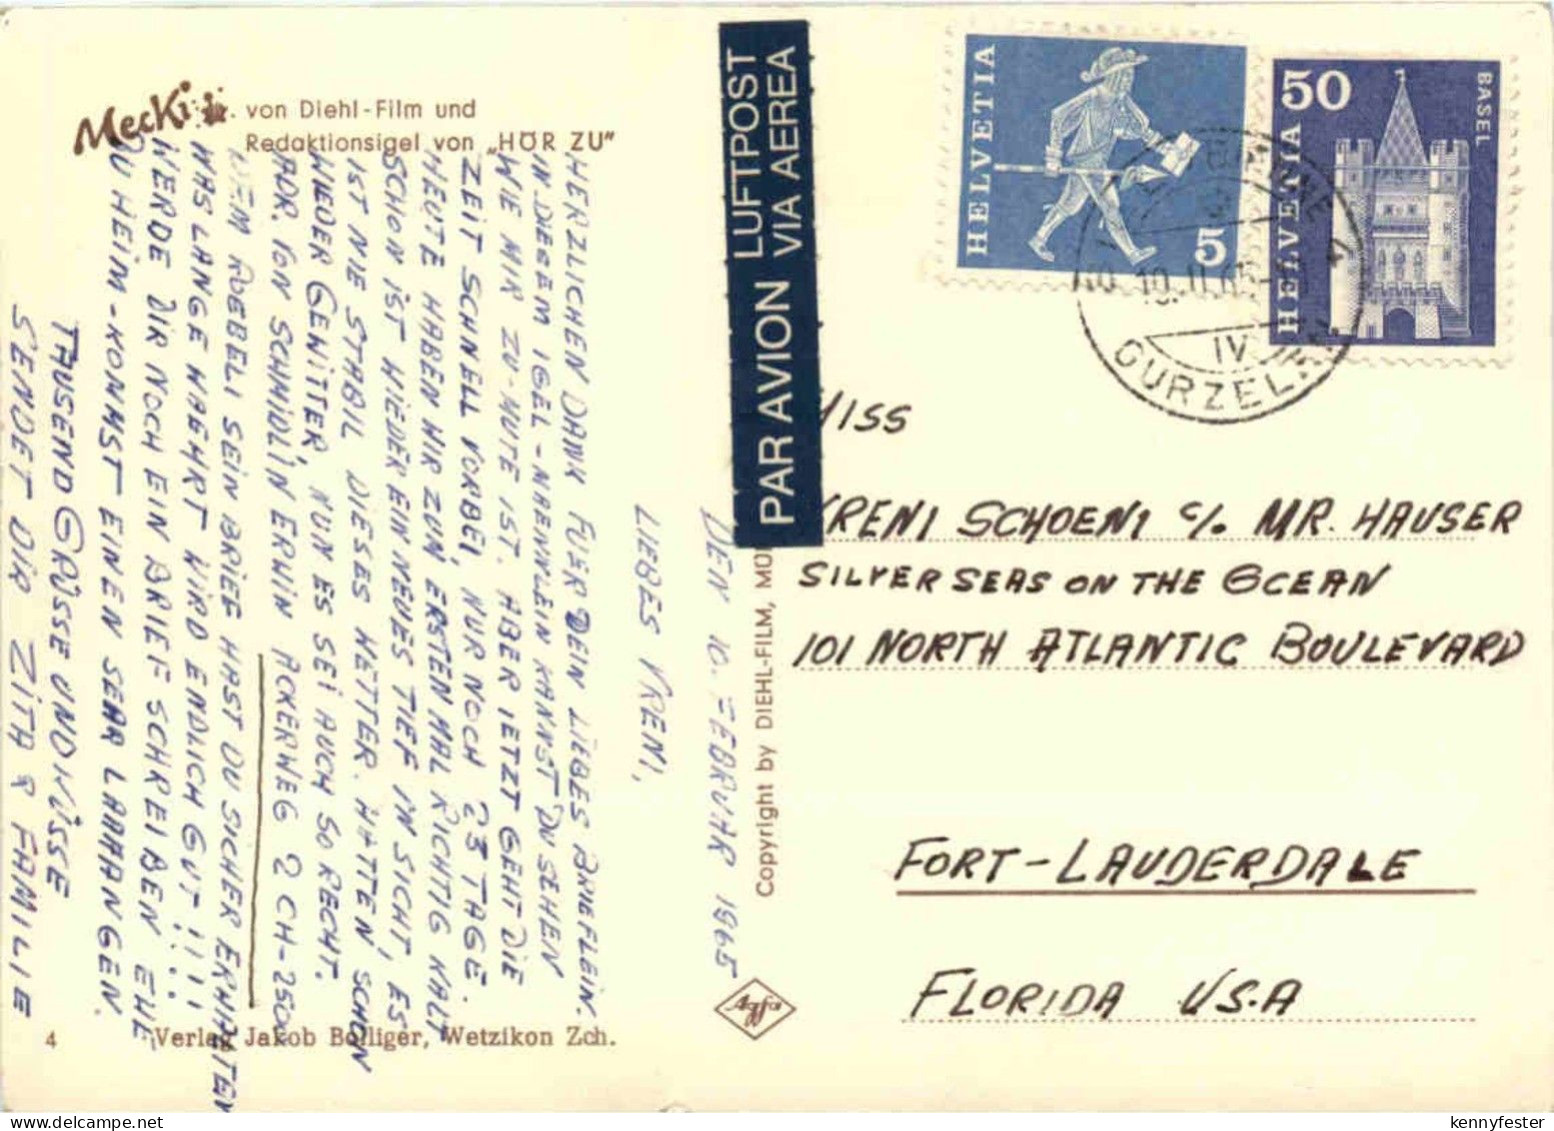 Mecki
von Diehl-Film und
Redaktionsigel von „HÖR ZU"
DEN 10. FEBRUAR 1965
LIEBES VRENI,
HERZLICHEN DANK FUER DEIN LIEBES BRIEFLEIN.
IN DIESEM IGEL-MAENNLEIN KANNST DU SEHEN
WIE MIR ZU-MUTE IST. ABER JETZT GEHT DIE
ZEIT SCHNELL VORBEI, NUR NOCH 23 TAGE.
HEUTE HABEN WIR ZUM ERSTEN MAL RICHTIG KALT
SCHON IST WIEDER EIN NEUES TIEF IN SICHT, ES
IST NIE STABIL DIESES WETTER. HATTEN SCHON
WIEDER GEWITTER, NUN ES SEI AUCH SO RECHT.
ADR. VON SCHMIDLIN ERWIN ACKERWEG 2 CH-250
DEM ROEBELI SEIN BRIEF HAST DU SICHER ERHALTEN
WAS LANGE WAEHRT WIRD ENDLICH GUT !!!!!
WERDE DIR NOCH EIN BRIEF SCHREIBEN EHE
DU HEIM-KOMMST EINEN SEHR LAAAANGEN.
TAUSEND GRÜSSE UND KÜSSE
SENDET DIR ZITA & FAMILIE
4
Verlag Jakob Bolliger, Wetzikon Zch.
Copyright by DIEHL-FILM,
Agfa
LUFTPOST
PAR AVION VIA AEREA
HELVETIA
5
50
BASEL
HELVETIA
IV
GURZELEN
MISS
VRENI SCHOENI c/o MR. HAUSER
SILVER SEAS ON THE OCEAN
101 NORTH ATLANTIC BOULEVARD
FORT-LAUDERDALE
FLORIDA U.S.A
kennyfester